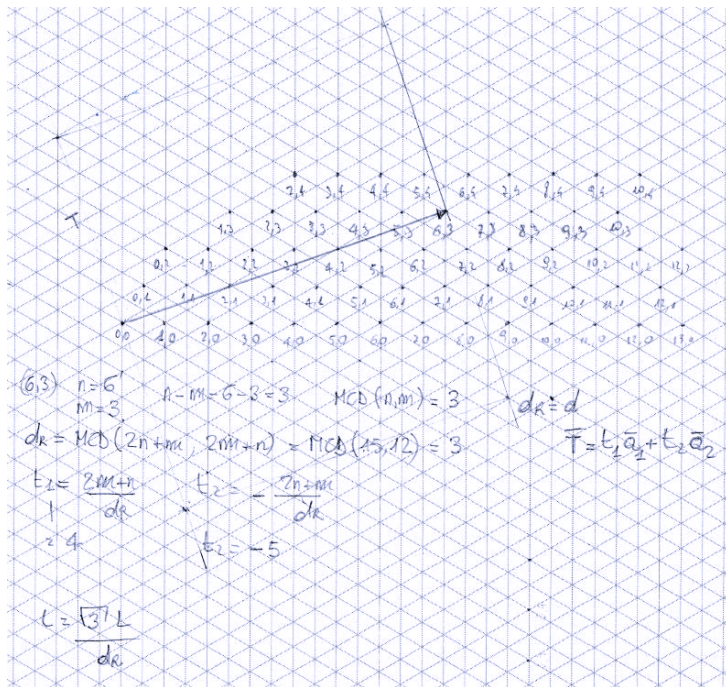 2,4 3,4 4,4 5,4 6,4 7,4 8,4 9,4 10,4
T
1,3 2,3 3,3 4,3 5,3 6,3 7,3 8,3 9,3 10,3
0,2 1,2 2,2 3,2 4,2 5,2 6,2 7,2 8,2 9,2 10,2 11,2 12,2
0,1 1,1 2,1 3,1 4,1 5,1 6,1 7,1 8,1 9,1 10,1 11,1 12,1
0,0 1,0 2,0 3,0 4,0 5,0 6,0 7,0 8,0 9,0 10,0 11,0 12,0 13,0
(6,3) n=6 n-m=6-3=3 MCD(n,m)=3 dR=d
m=3
dR = MCD(2n+m, 2m+n) = MCD(15,12) = 3 T̅=t₁a̅₁+t₂a̅₂
t₁= (2m+n)/dR t₂ = - (2n+m)/dR
= 4 t₂ = -5
t = √3 L/dR